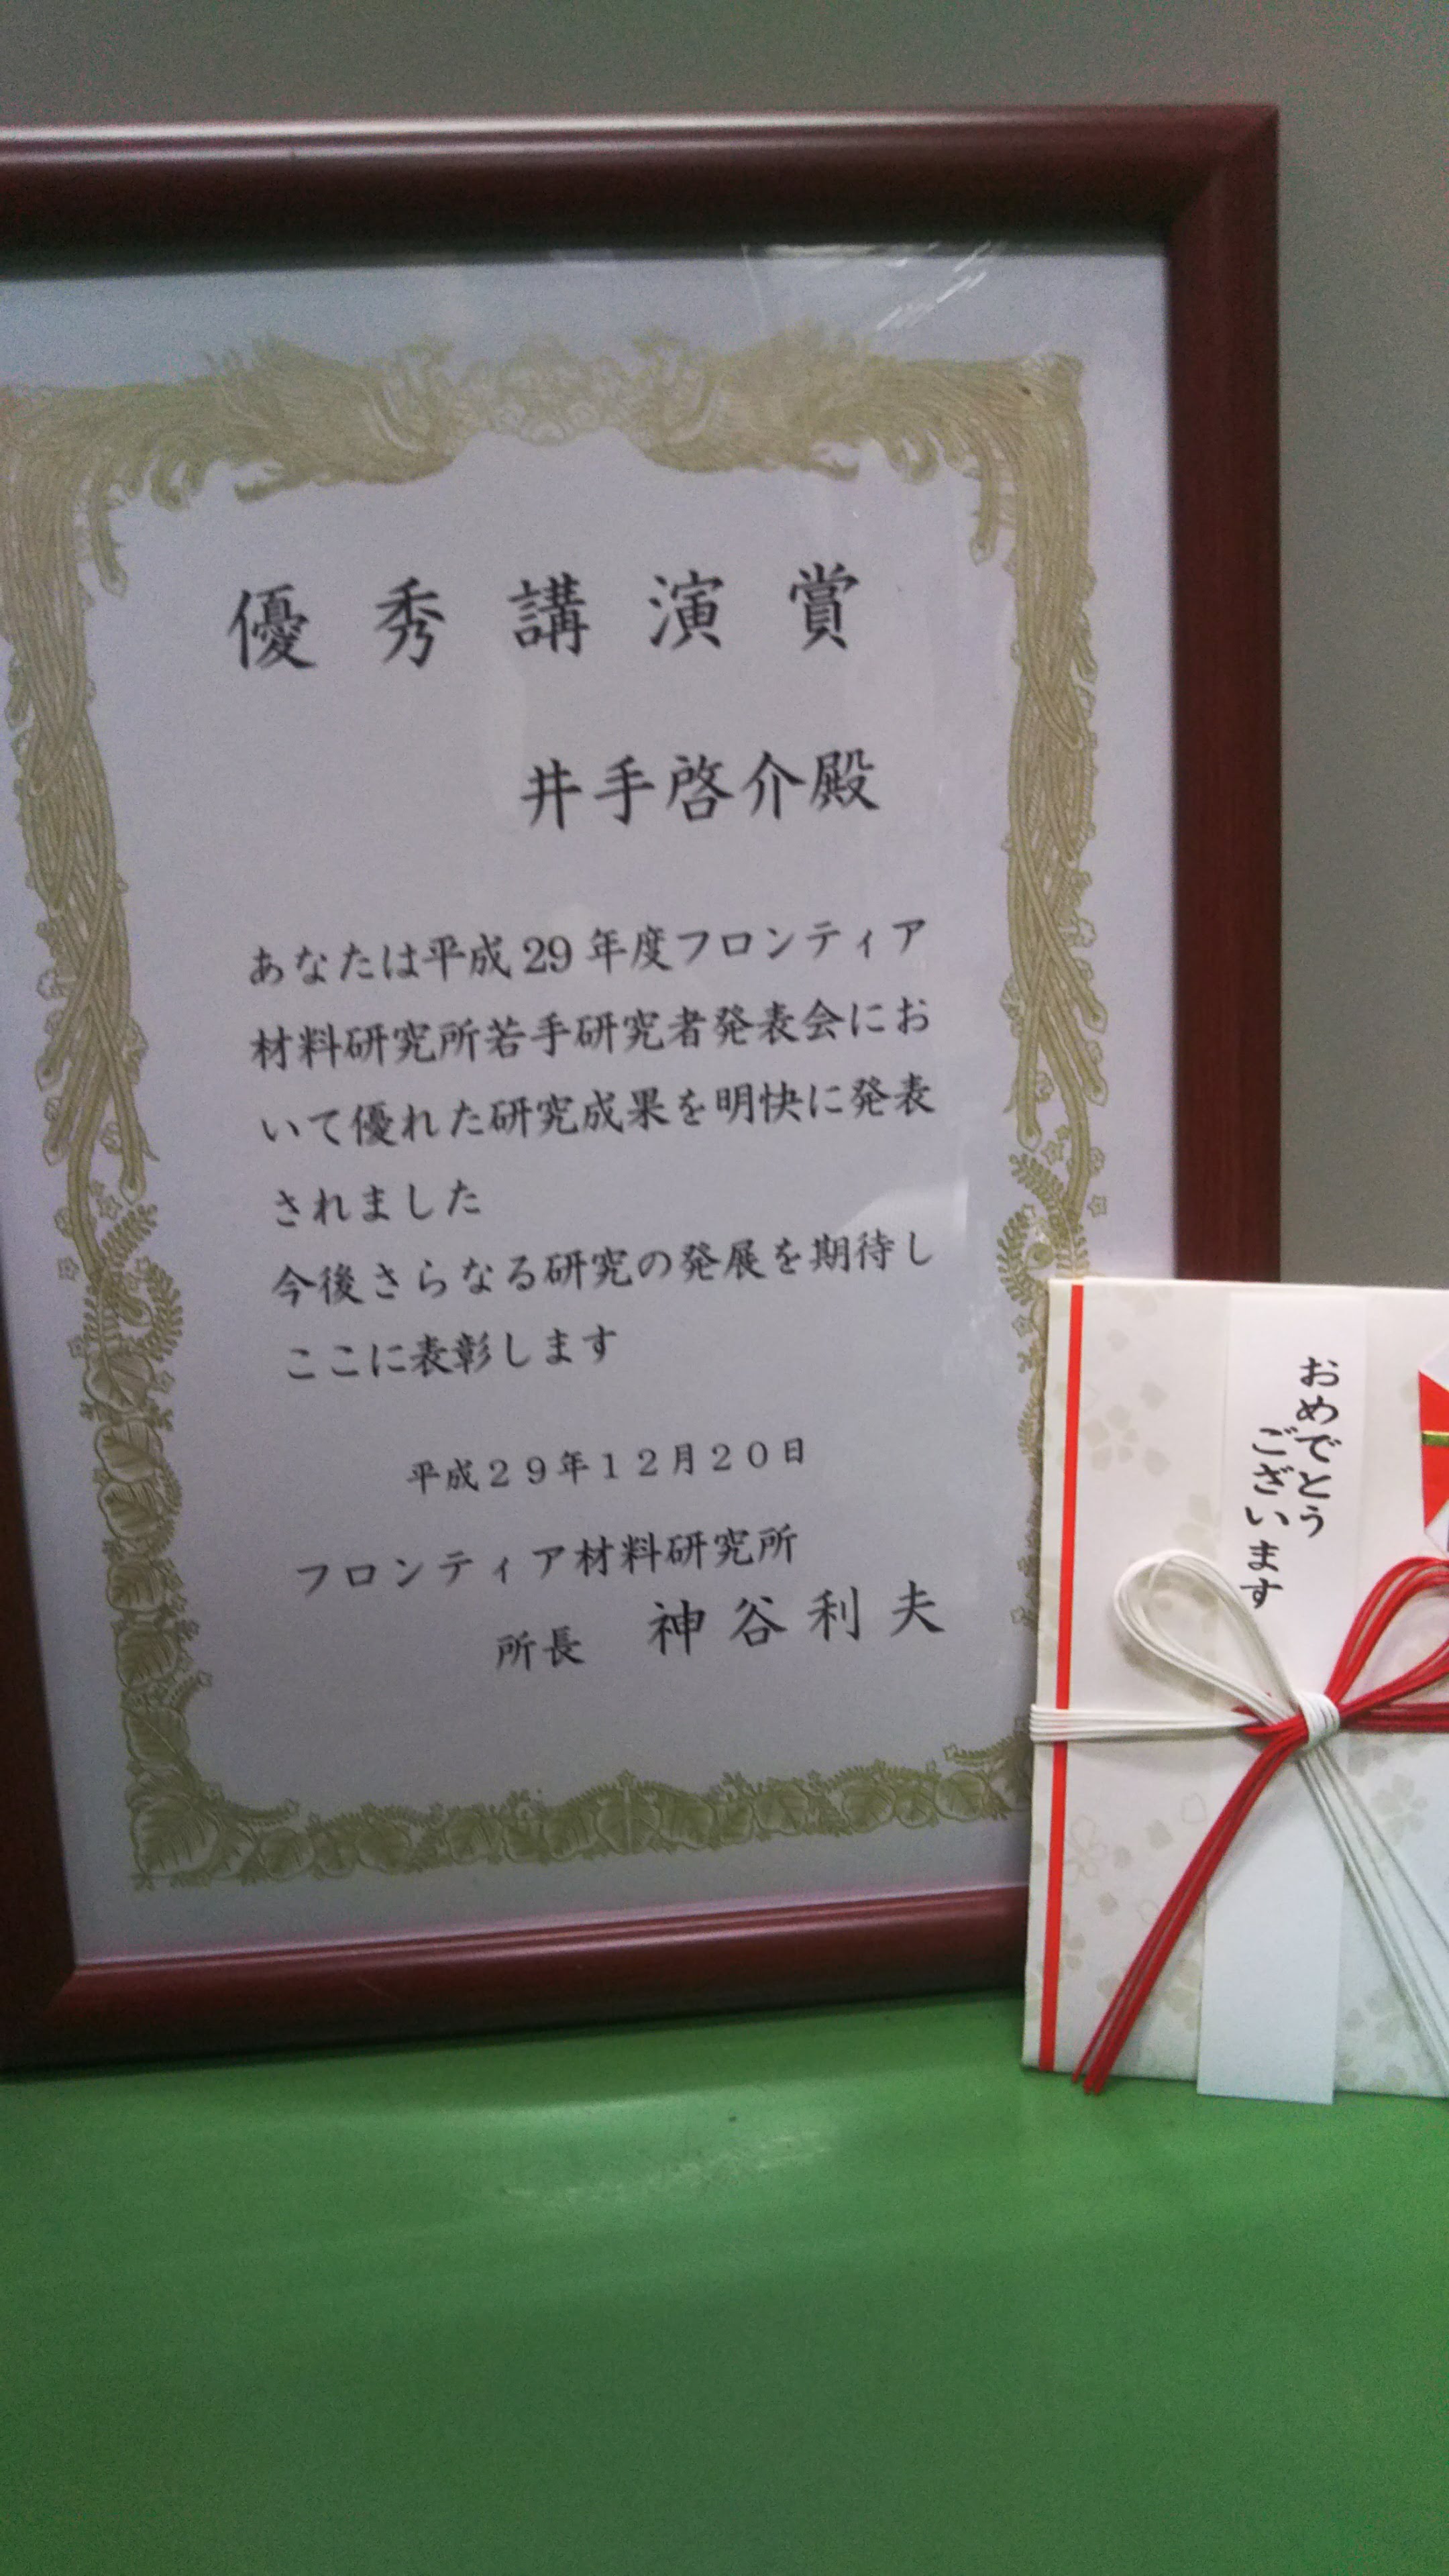 優秀講演賞
井手啓介殿
あなたは平成29年度フロンティア
材料研究所若手研究者発表会にお
いて優れた研究成果を明快に発表
されました
今後さらなる研究の発展を期待し
ここに表彰します
平成29年12月20日
フロンティア材料研究所
所長 神谷利夫
おめでとう
ございます